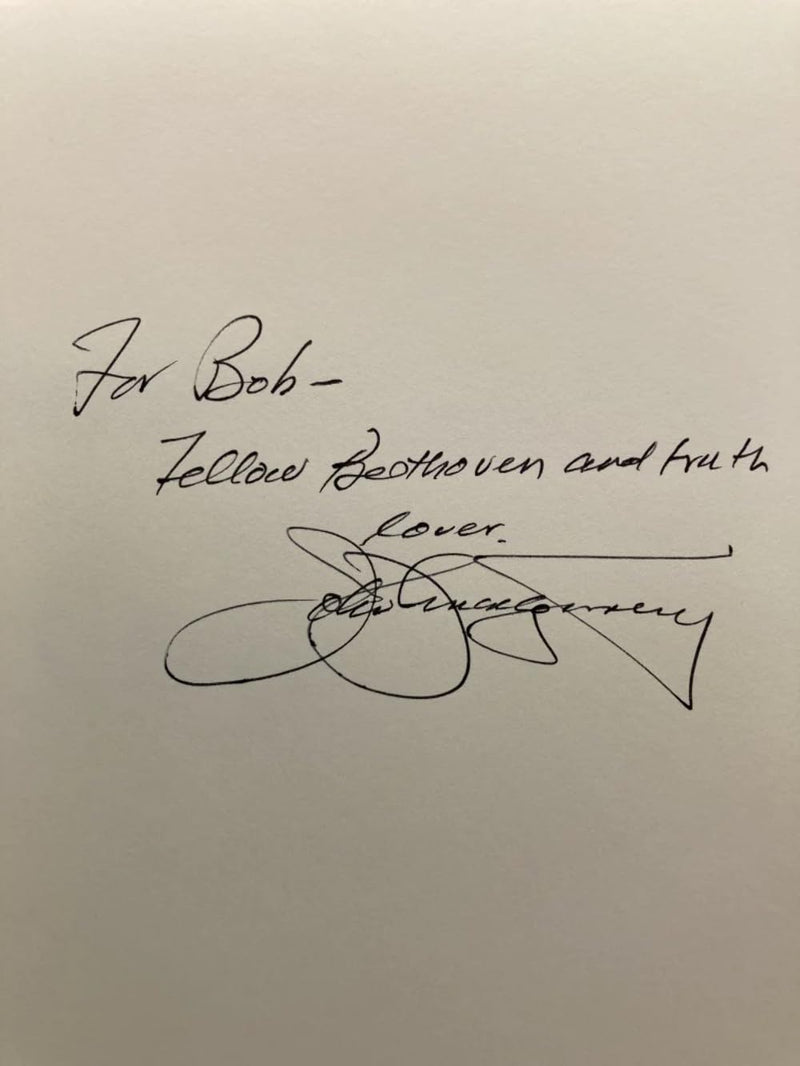 For Bob-
Fellow Beethoven and truth
lover.
John